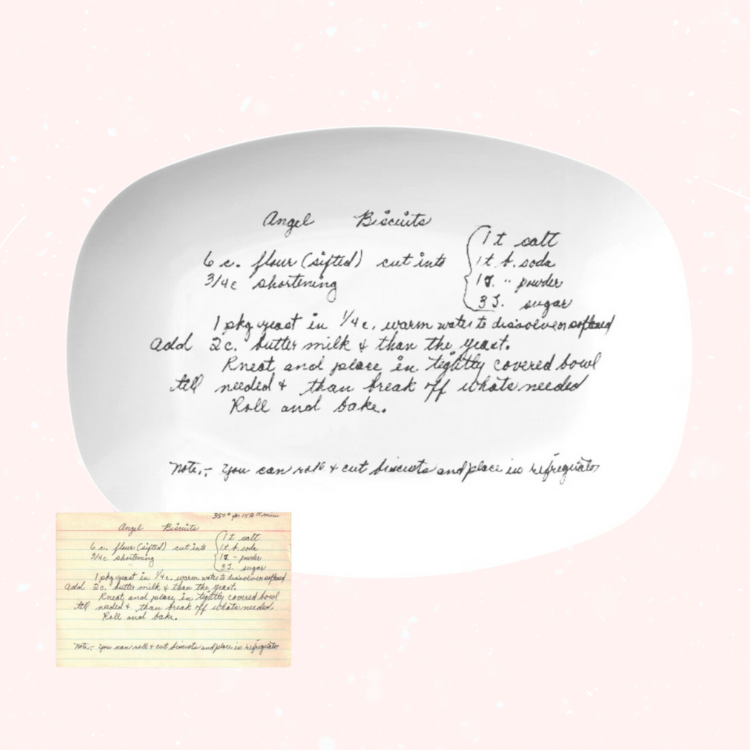 Angel Biscuits
6 c. flour (sifted) cut into
3/4c shortening
1 t salt
1 t. b. soda
1 T. " powder
3 T. sugar
1 pkg yeast in 1/4 c. warm water to dissolve or softened
add 2c. butter milk & than the yeast.
Kneat and place in tightly covered bowl
till needed & than break off whats needed
Roll and bake.
Note,- you can roll & cut biscuits and place in refregirator
350° for 15 to
Angel Biscuits
6 c. flour (sifted) cut into
3/4c shortening
1 t salt
1 t. b. soda
1 T. " powder
3 T. sugar
1 pkg yeast in 1/4 c. warm water to dissolve or softened
add 2c. butter milk & than the yeast.
Kneat and place in tightly covered bowl
till needed & than break off whats needed
Roll and bake.
Note,- you can roll & cut biscuits and place in refregirator